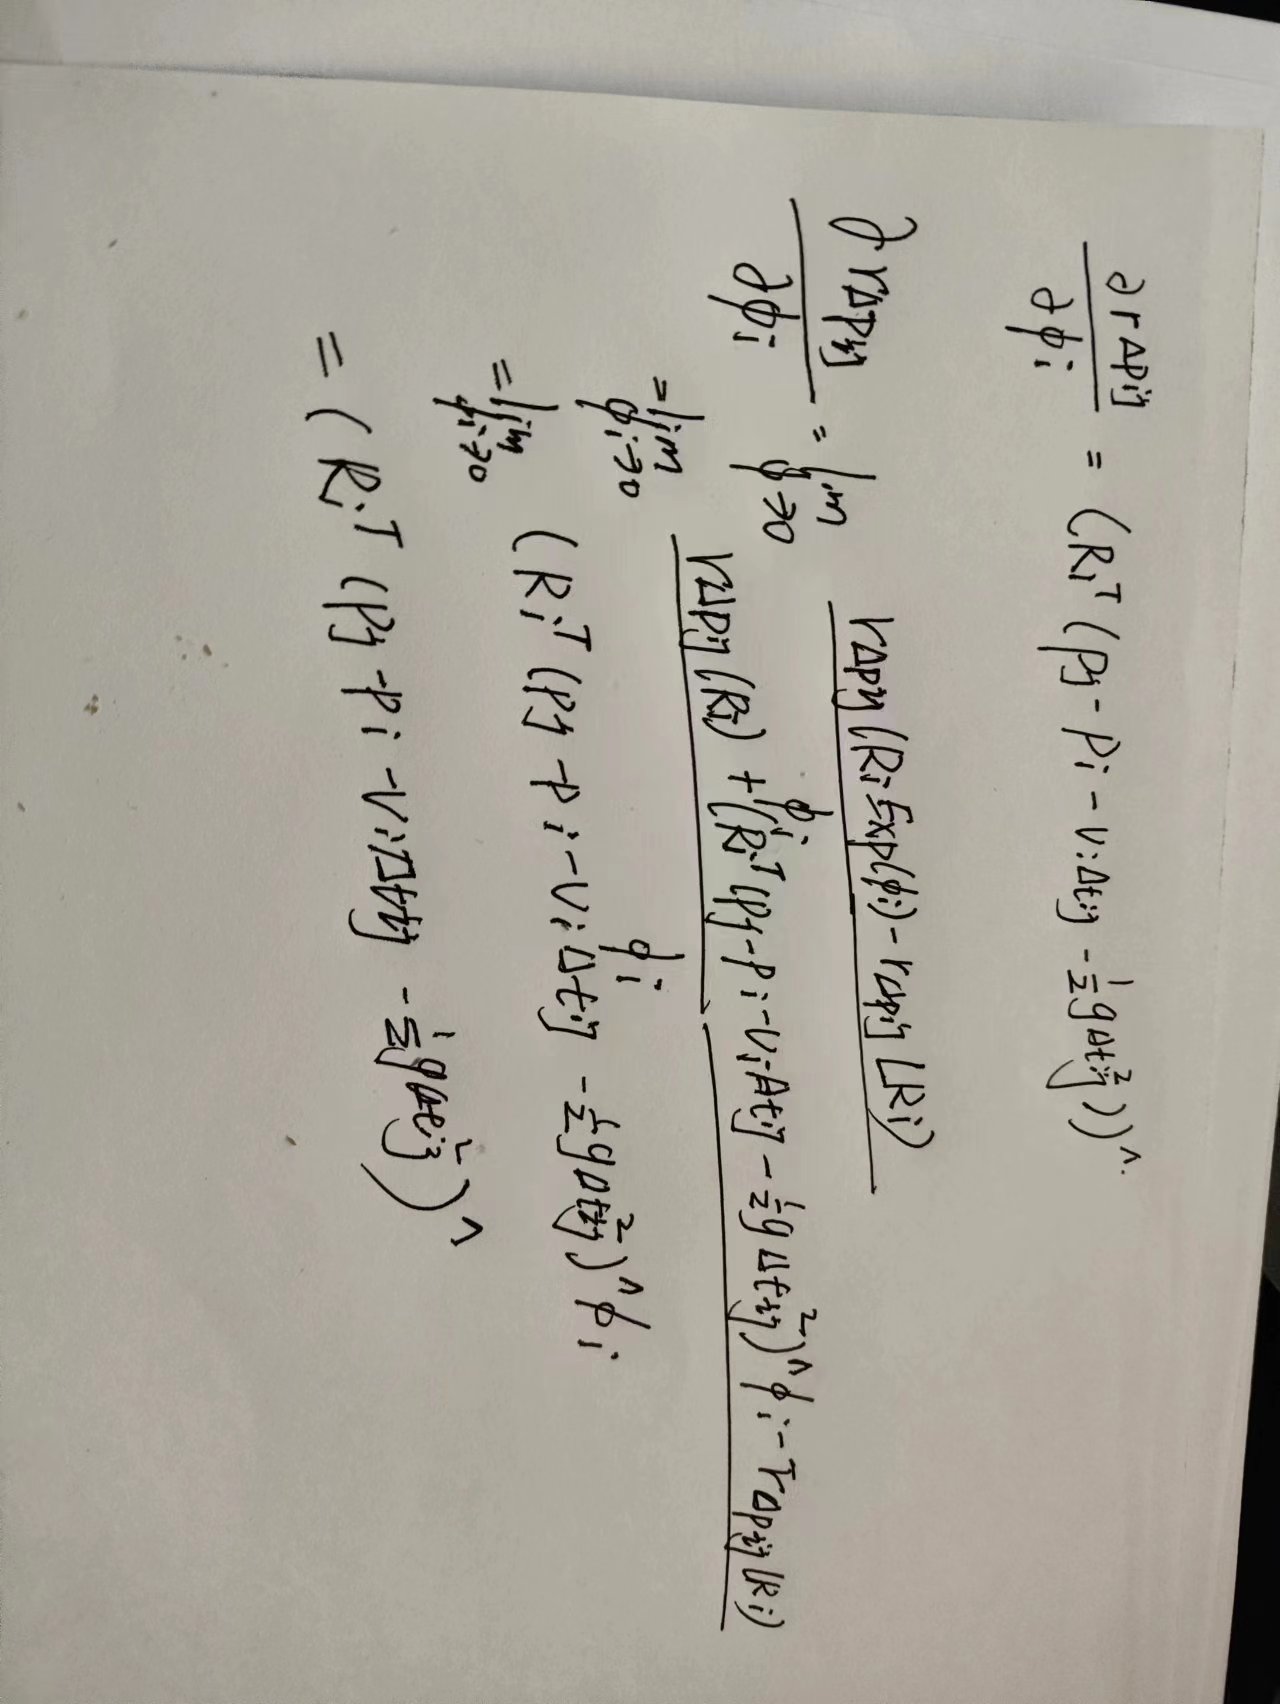 ∂rΔpij / ∂ϕi = (Ri^T (pj - pi - viΔtij - 1/2 gΔtij^2))^∧.
∂rΔpij / ∂ϕi = lim ϕ→0 rΔpij(Ri Exp(ϕi) - rΔpij(Ri) / ϕi
= lim ϕi→0 rΔpij(Ri) + (Ri^T (pj - pi - viΔtij - 1/2 gΔtij^2)^∧ ϕi - rΔpij(Ri) / ϕi
= lim ϕi→0 (Ri^T (pj - pi - viΔtij - 1/2 gΔtij^2)^∧ ϕi
= (Ri^T (pj - pi - viΔtij - 1/2 gΔtij^2)^∧